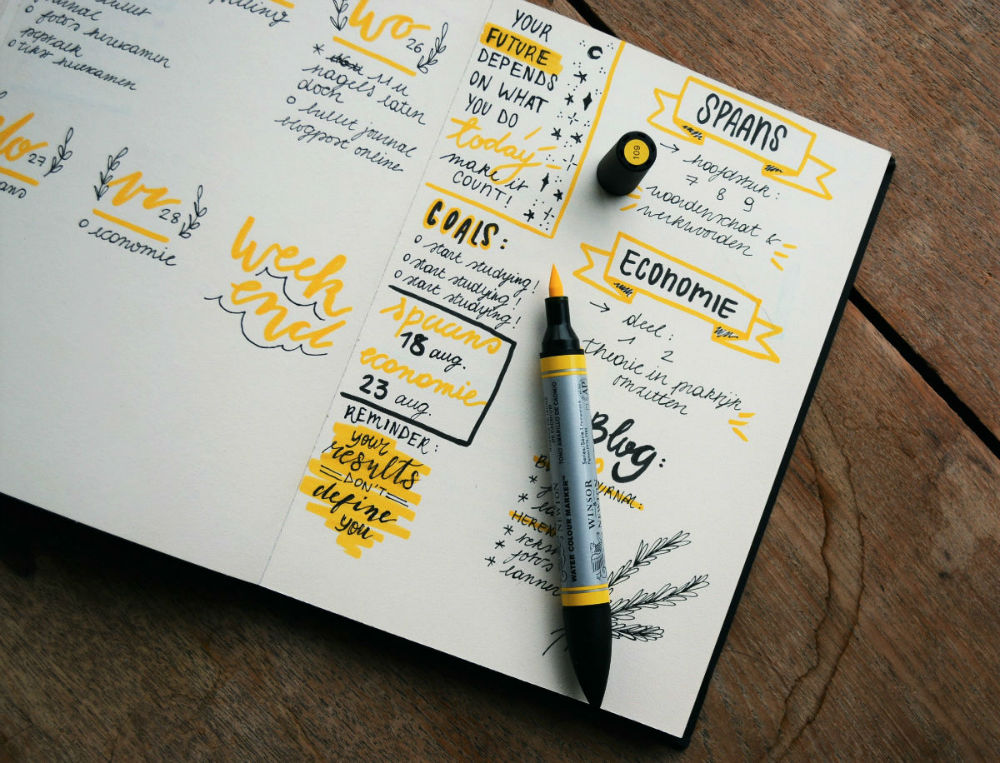 o fotos herexamen
peptalk
tekst herexamen
wo
26
* 11 u
nagels laten
doen
o bullet journal
blogpost online
do
27
vr
28
o economie
week
end
YOUR
FUTURE
DEPENDS
ON WHAT
YOU DO
today
make it
COUNT!
GOALS:
o start studying!
o start studying!
o start studying!
spaans
18 aug.
economie
23 aug.
REMINDER:
your
results
DON'T
define
you
109
SPAANS
→ hoofdstuk:
7 8 9
woordenschat &
werkwoorden
ECONOMIE
→ deel:
1 2
theorie in praktijk
omzetten
Blog:
* tekst
* fotos
WATER COLOUR MARKER™
WINSOR
NEWTON